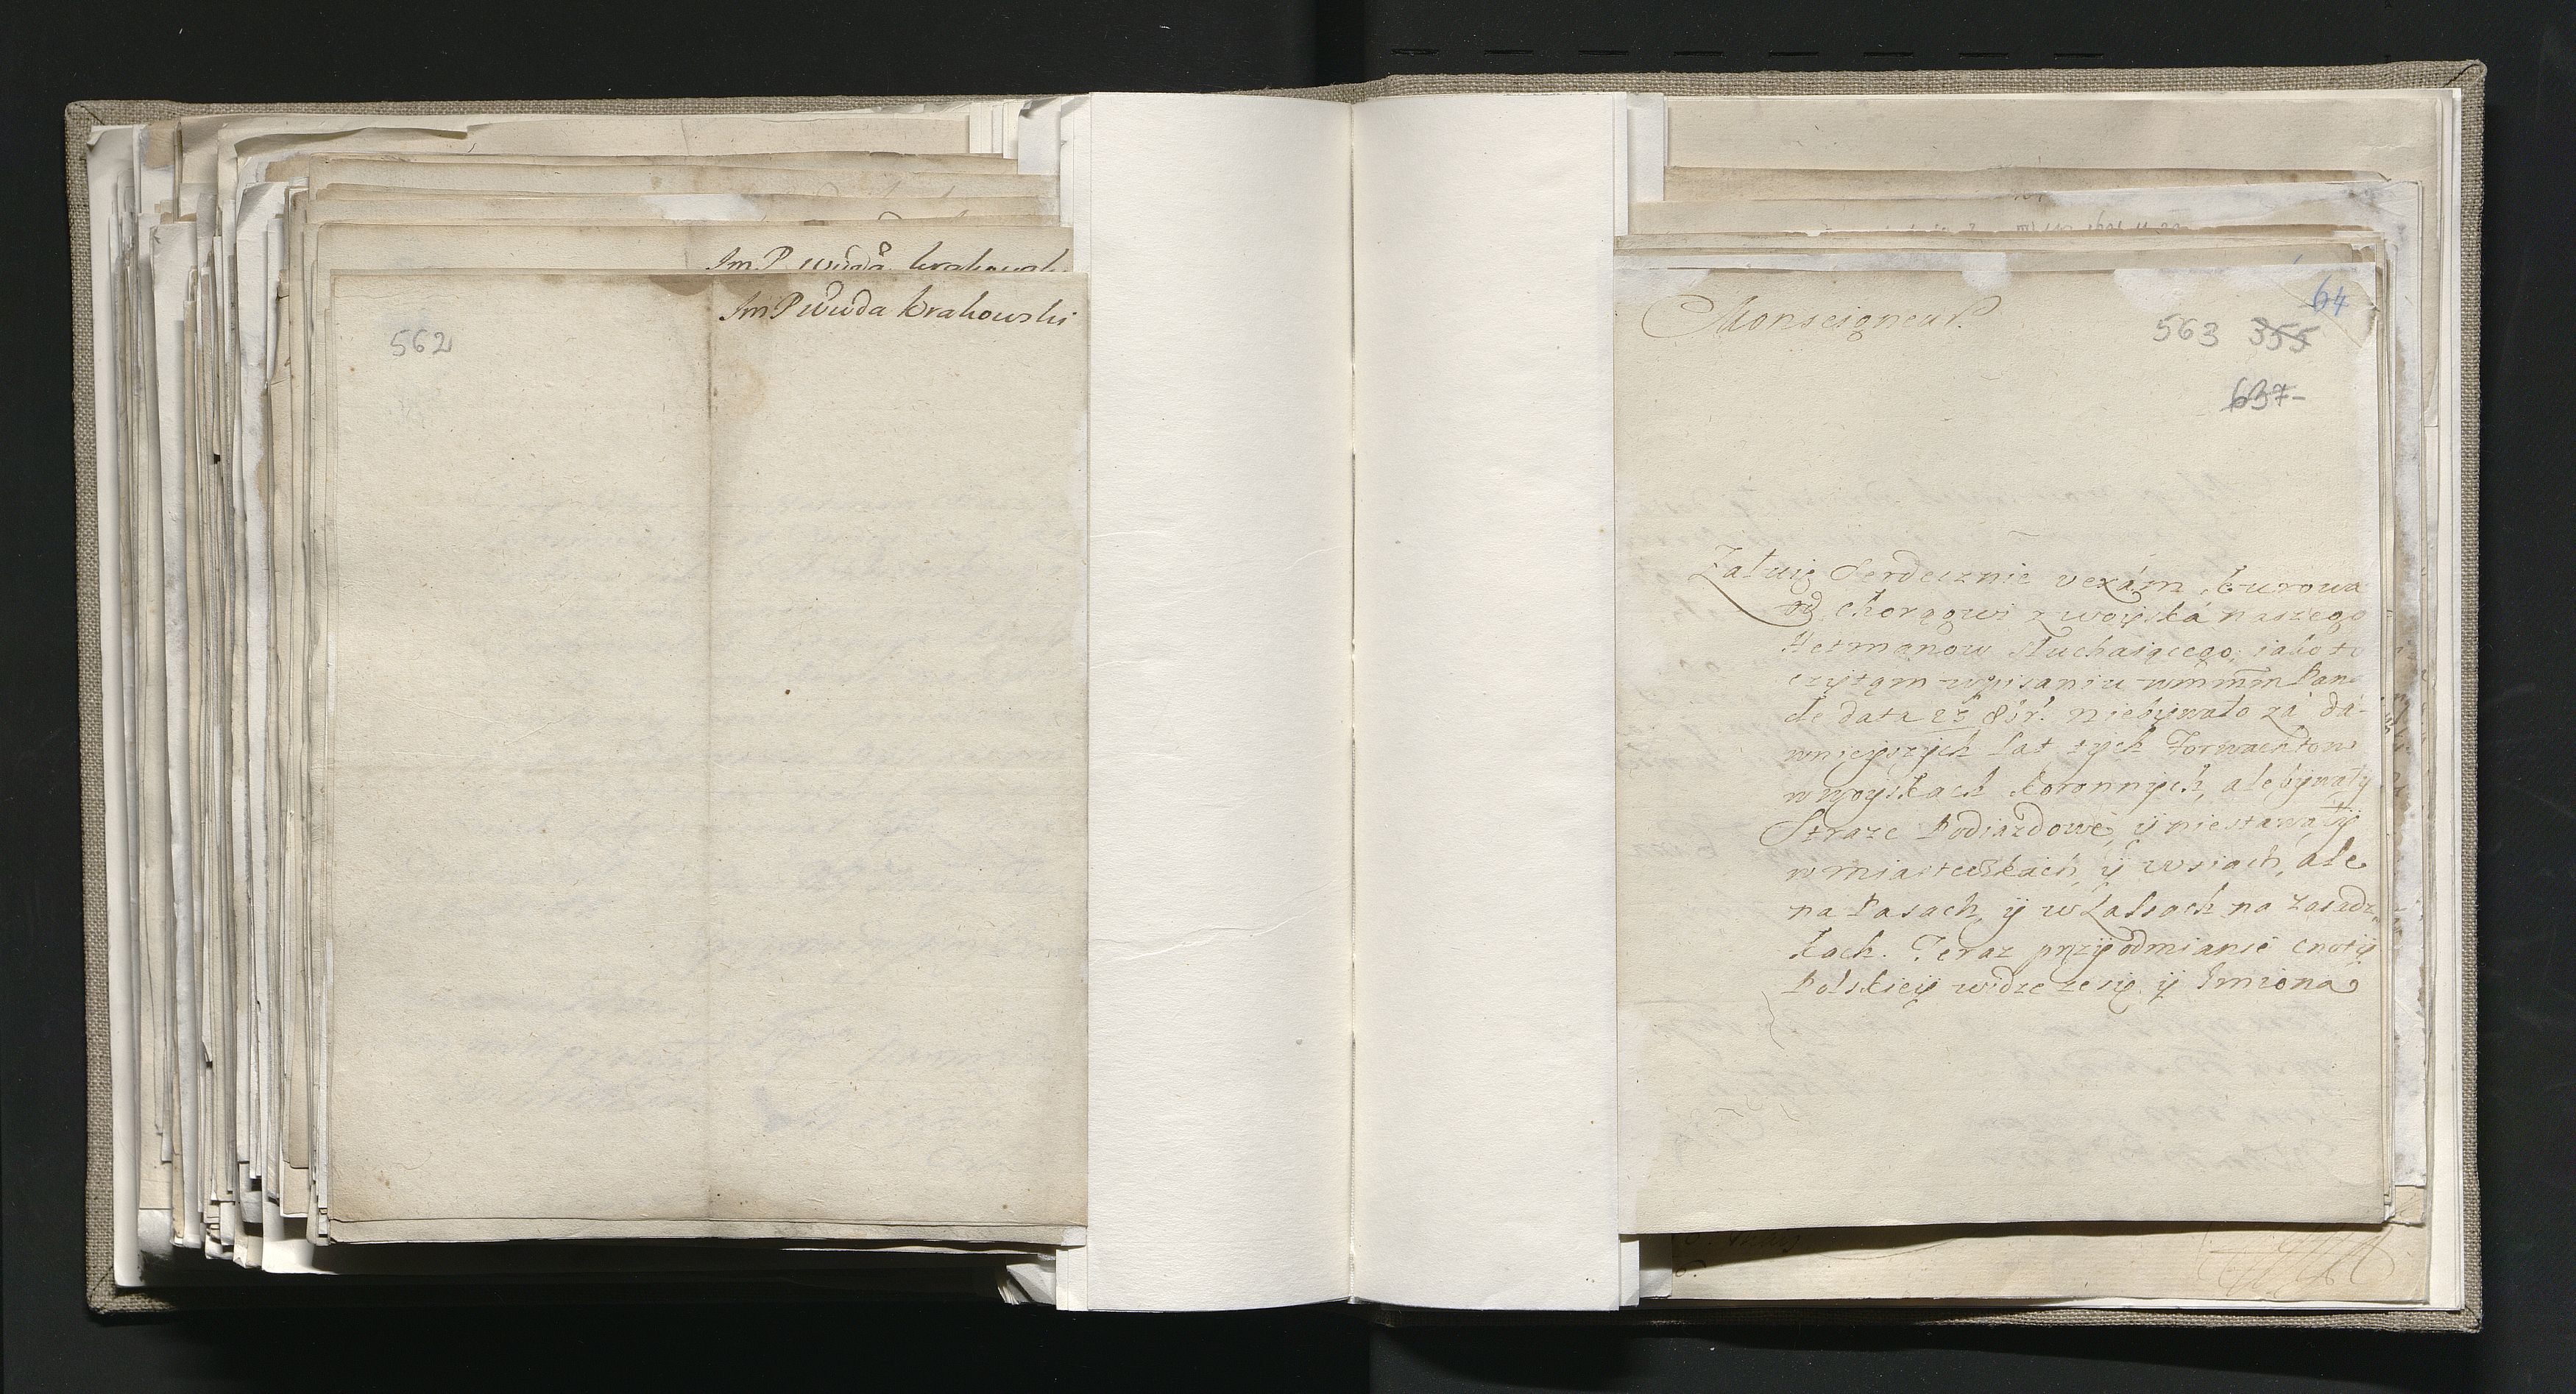 Im P wwda krakowski
Im P wwda krakowski
562
Monseigneur.
64
563 355
637-
Załuię Serdecznie vexám, Kurowa
od Chorągwi z woyská naszego
Hetmanow słuchaiącego, iako to
czytąm wpisaniu wmmm Pan
de data 23 8br. niebywało zá dá-
wnieyszych Lat tych Forwachtow
w woyskach koronnych, ale bywały
Straże Podiazdowe, y niestawały
w miasteczkach, y wsiach, ale
na Pasach, y w Lasach na Zasadz
kach. Teraz przy odmianie cnoty
Polskiey widze ze się y Imiona